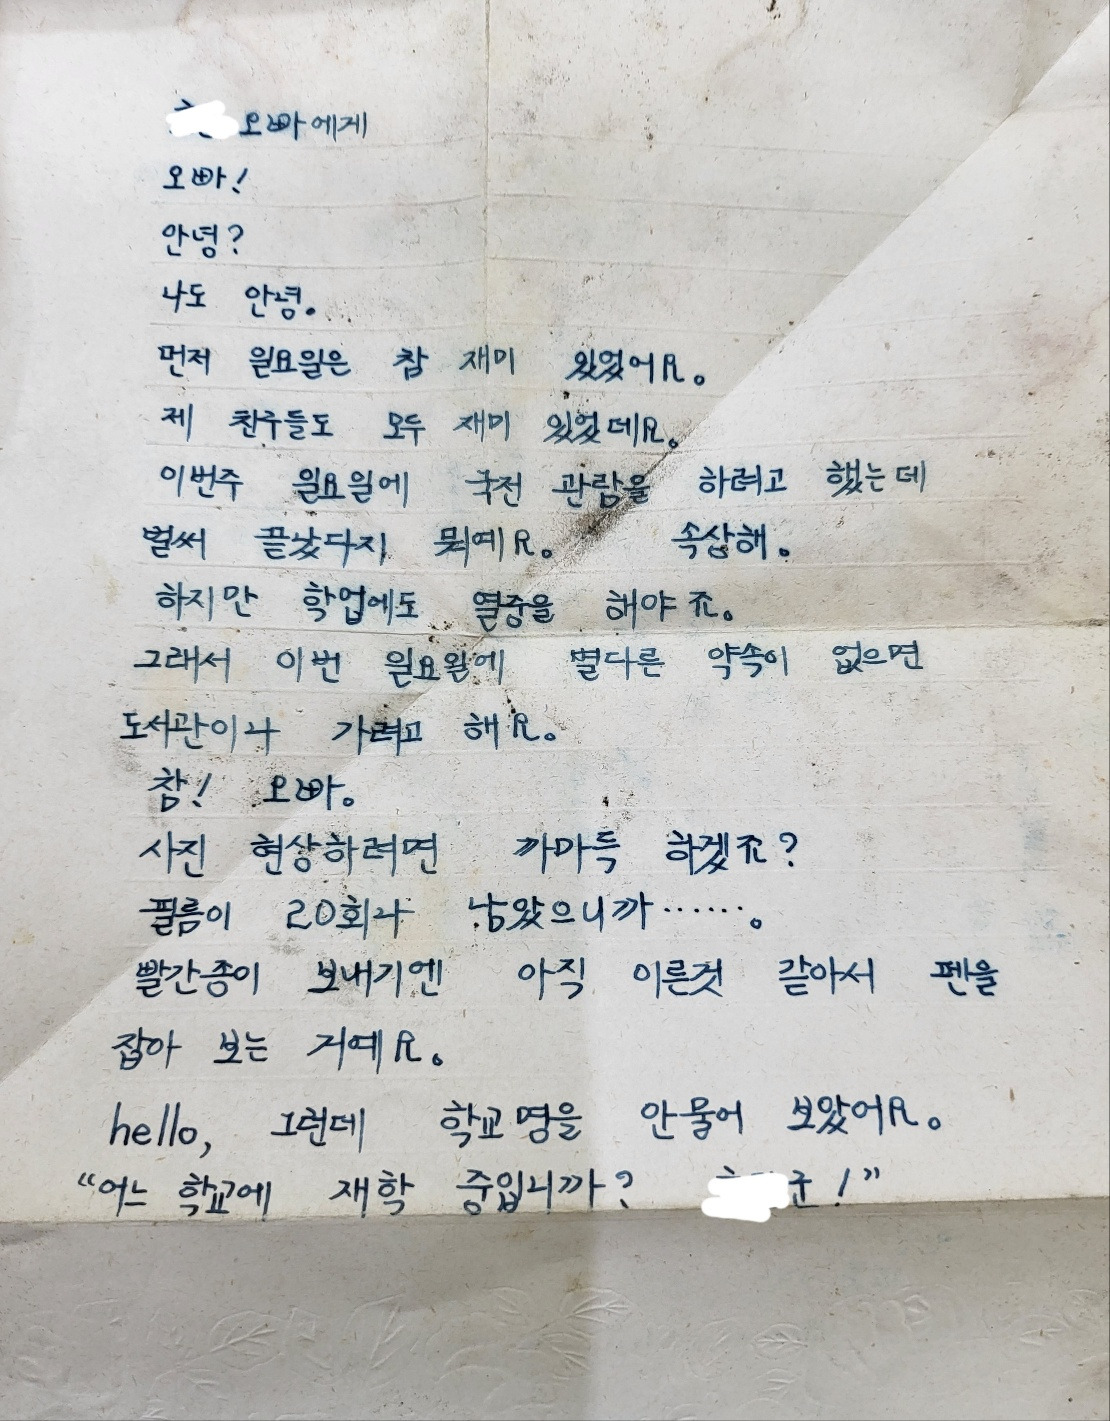 오빠에게
오빠!
안녕?
나도 안녕.
먼저 일요일은 참 재미 있었어요.
제 친구들도 모두 재미 있었데요.
이번주 일요일에 국전 관람을 하려고 했는데
벌써 끝났다지 뭐예요. 속상해.
하지만 학업에도 열중을 해야죠.
그래서 이번 일요일에 별다른 약속이 없으면
도서관이나 가려고 해요.
참! 오빠.
사진 현상하려면 까마득 하겠죠?
필름이 20회나 남았으니까…….
빨간종이 보내기엔 아직 이른것 같아서 펜을
잡아 보는 거예요.
hello, 그런데 학교명을 안물어 보았어요.
“어느 학교에 재학 중입니까? 군!”